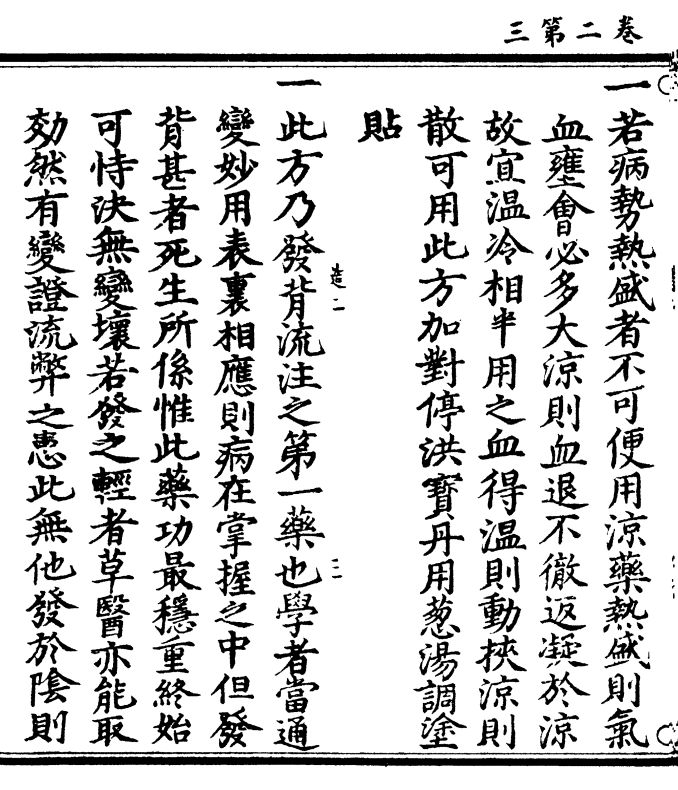 卷二第三
一若病勢熱盛者不可便用涼藥熱盛則氣
血壅會必多大涼則血退不徹返凝於涼
故宜温冷相半用之血得温則動挾涼則
散可用此方加對停洪寳丹用葱湯調塗
貼
一此方乃發背流注之第一藥也學者當通
變妙用表裏相應則病在掌握之中但發
背甚者死生所係惟此藥功最穩重終始
可恃決無變壞若發之輕者草醫亦能取
効然有變證流弊之患此無他發於陰則